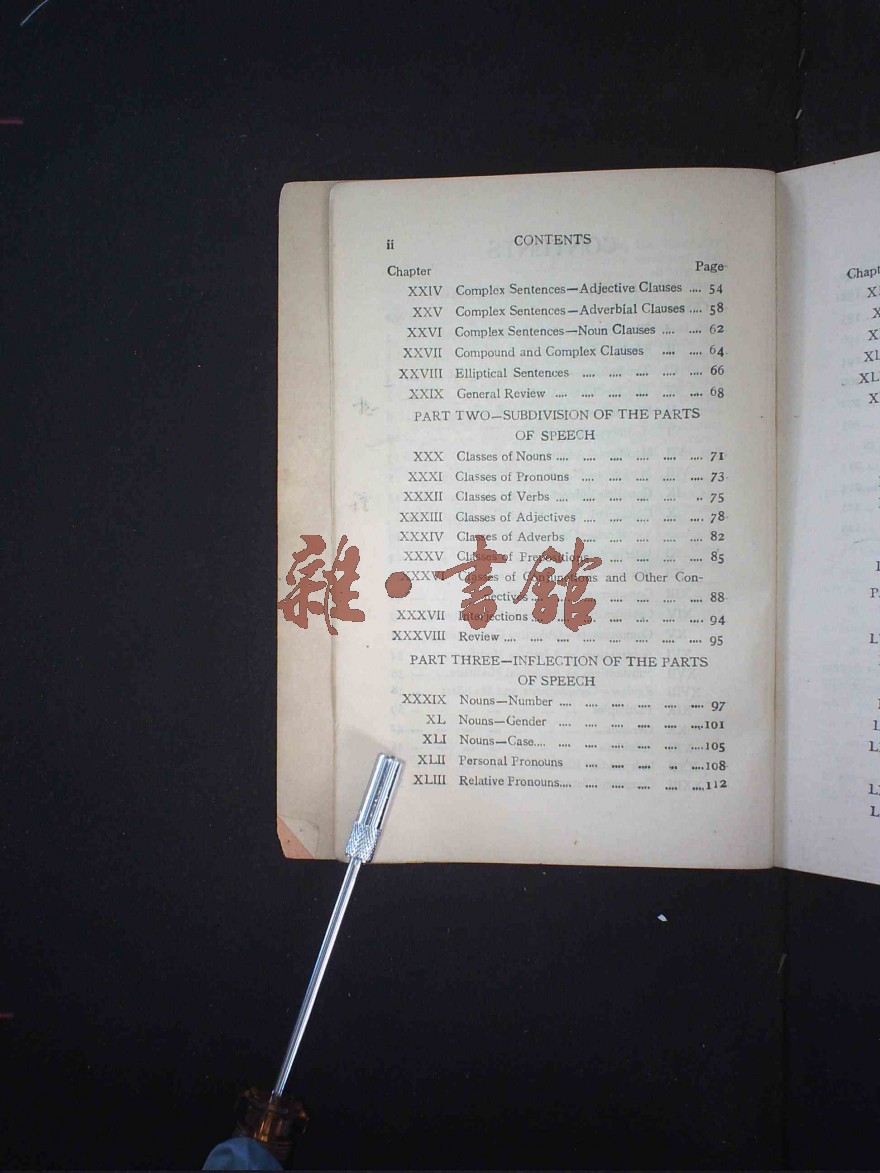 ii CONTENTS
Chapter Page
XXIV Complex Sentences—Adjective Clauses .... 54
XXV Complex Sentences—Adverbial Clauses .... 58
XXVI Complex Sentences—Noun Clauses .... .... 62
XXVII Compound and Complex Clauses .... .... 64
XXVIII Elliptical Sentences .... .... .... .... .... 66
XXIX General Review .... .... .... .... .... .... 68
PART TWO—SUBDIVISION OF THE PARTS
OF SPEECH
XXX Classes of Nouns .... .... .... .... .... .... 71
XXXI Classes of Pronouns .... .... .... .... .... 73
XXXII Classes of Verbs .... .... .... .... .... .. 75
XXXIII Classes of Adjectives .... .... .... .... .... 78
XXXIV Classes of Adverbs .... .... .... .... .... 82
XXXV Classes of Prepositions .... .... .... .... 85
XXXVI Classes of Conjunctions and Other Con-
nectives .... .... .... .... .... .... .... 88
XXXVII Interjections .... .... .... .... .... .... .... 94
XXXVIII Review .... .... .... .... .... .... .... .... 95
PART THREE—INFLECTION OF THE PARTS
OF SPEECH
XXXIX Nouns—Number .... .... .... .... .... .... 97
XL Nouns—Gender .... .... .... .... .... .... 101
XLI Nouns—Case.... .... .... .... .... .... .... 105
XLII Personal Pronouns .... .... .... .... .... 108
XLIII Relative Pronouns.... .... .... .... .... .... 112
雜·書館